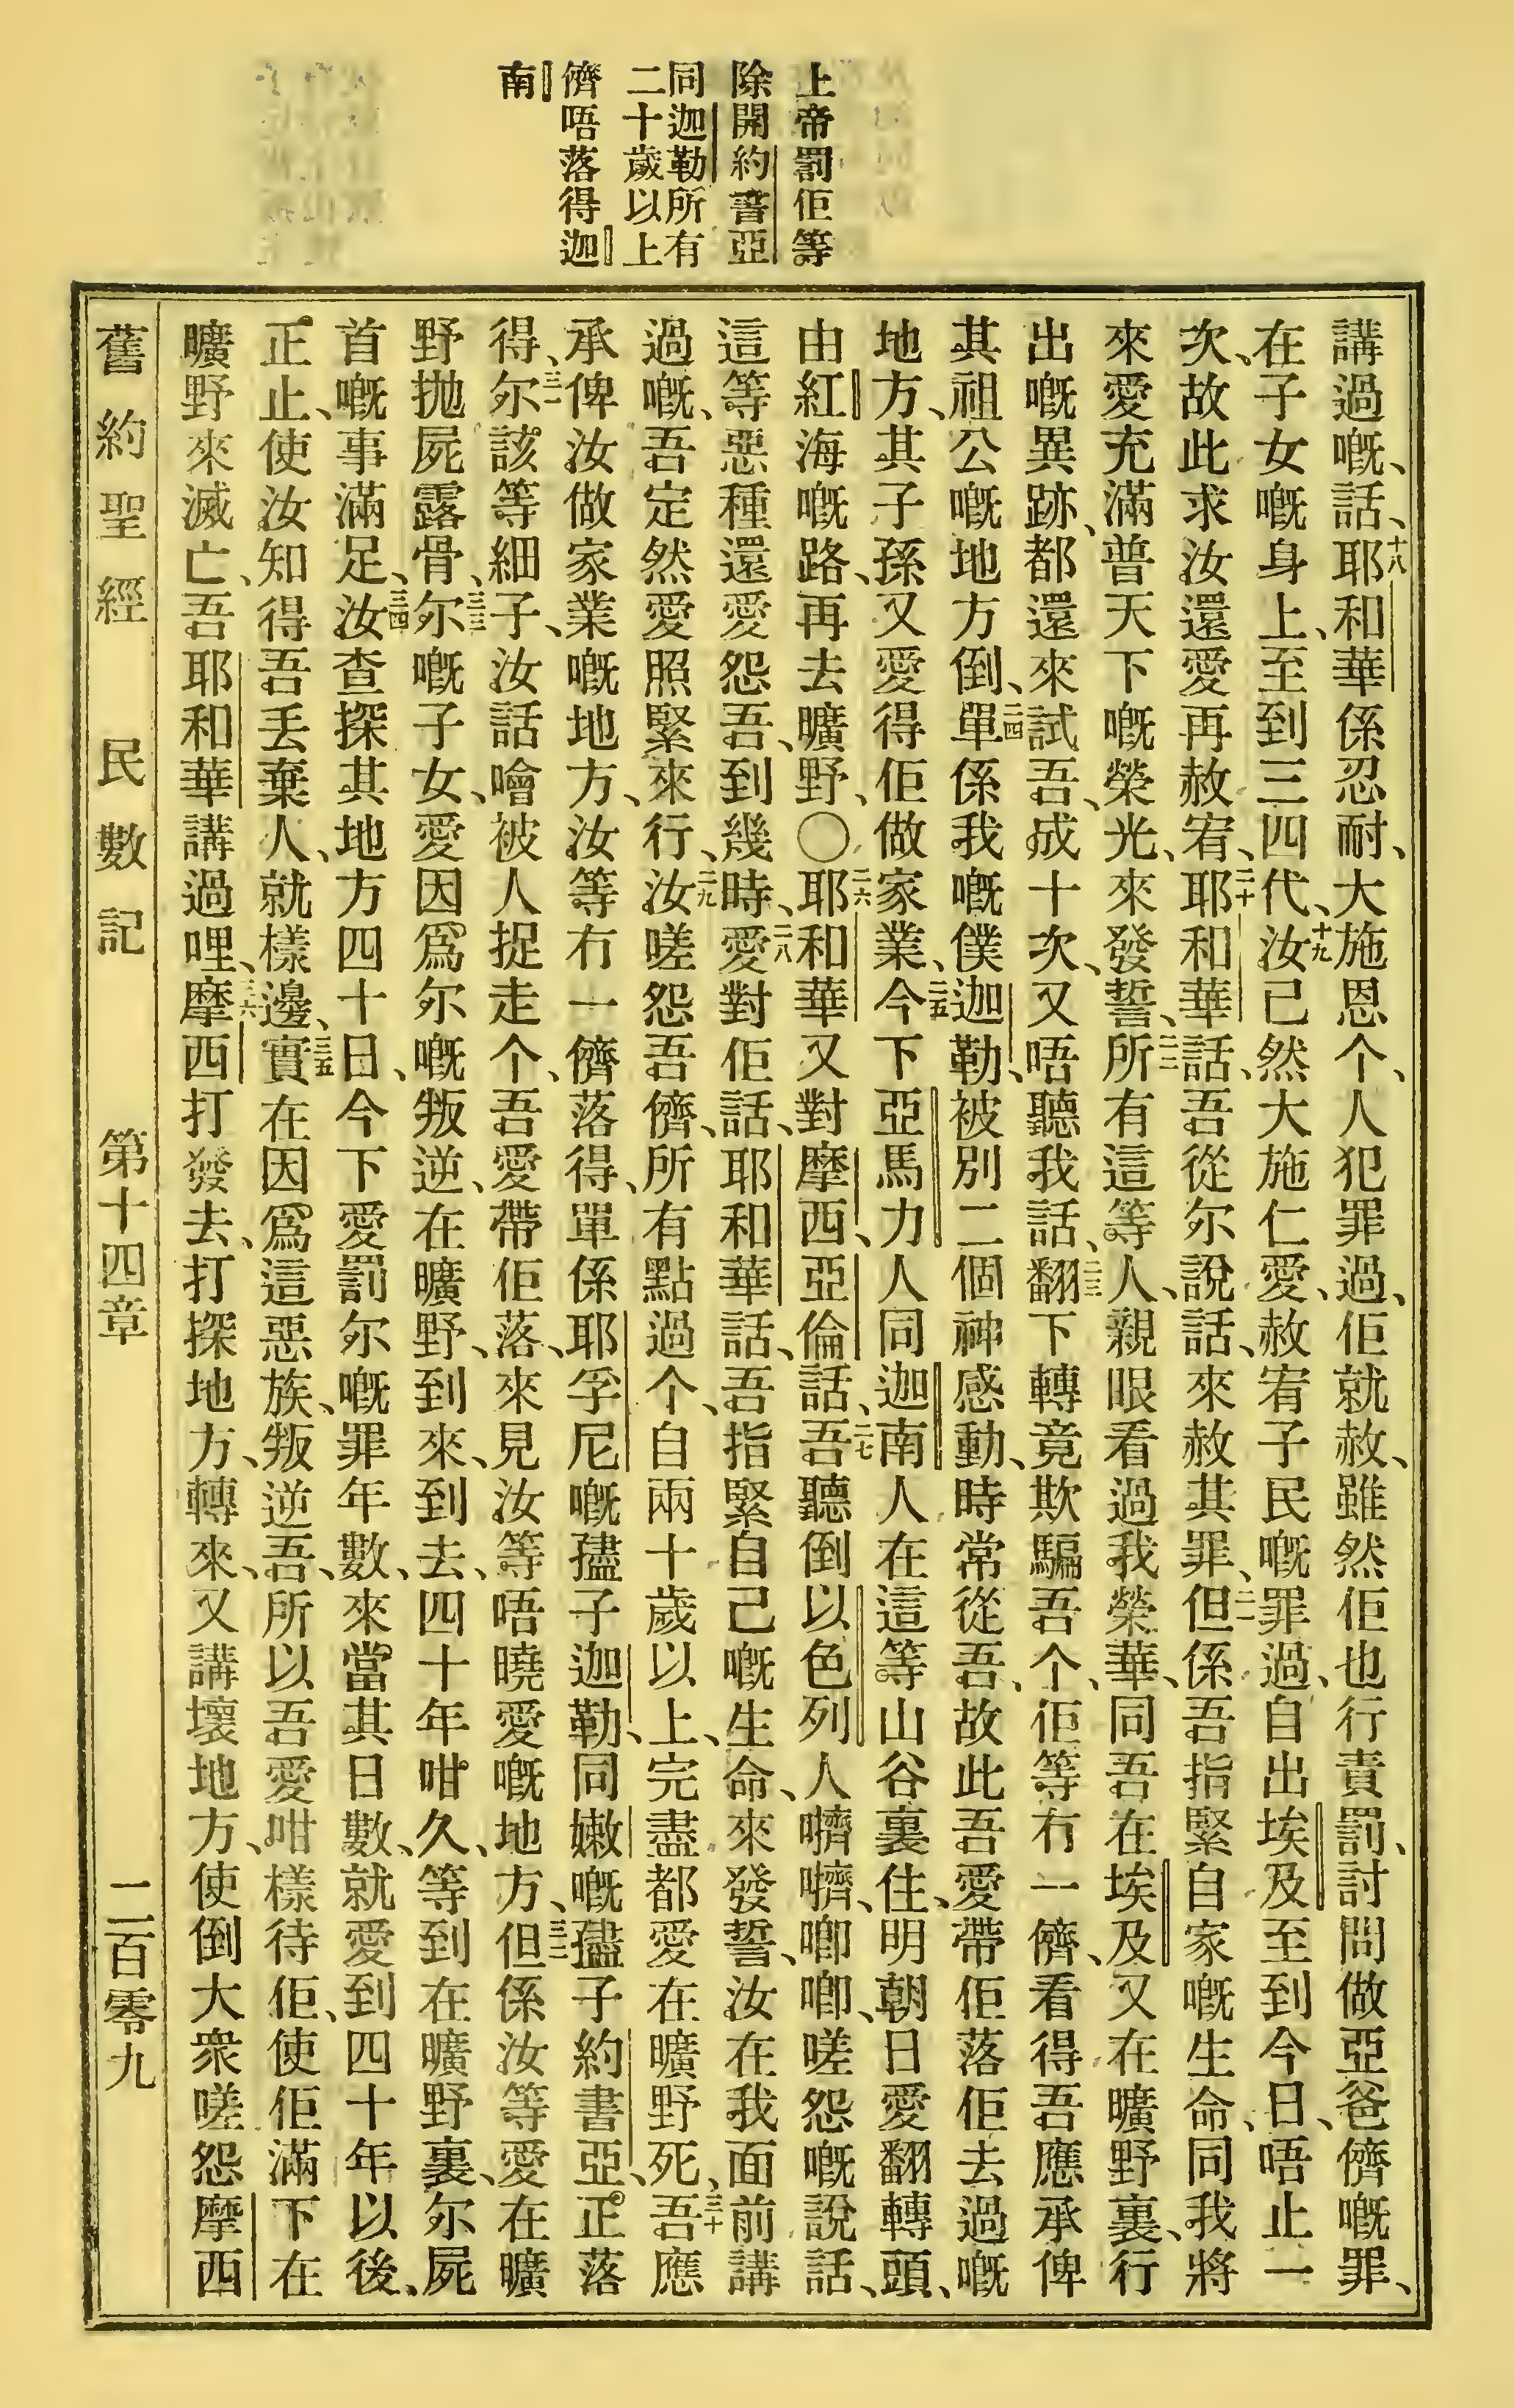 上帝罰佢等
除開約書亞
同迦勒所有
二十歲以上
儕唔落得迦
南
講過嘅、話、十八耶和華係忍耐、大施恩个、人犯罪過、佢就赦、雖然佢也行責罰、討問做亞爸儕嘅罪、
在子女嘅身上、至到三四代、十九汝已然大施仁愛、赦宥子民嘅罪過、自出埃及至到今日、唔止一
次、故此求汝還愛再赦宥、二十耶和華話、吾從尔說話、來赦其罪、二一但係吾指緊自家嘅生命、同我將
來愛充滿普天下嘅榮光、來發誓、二二所有這等人、親眼看過我榮華、同吾在埃及又在曠野裏、行
出嘅異跡、都還來試吾、成十次、又唔聽我話、二三翻下轉竟欺騙吾个、佢等冇一儕、看得吾應承俾
其祖公嘅地方倒、二四單係我嘅僕迦勒、被別二個神感動、時常從吾、故此吾愛帶佢落佢去過嘅
地方、其子孫又愛得佢做家業、二五今下亞馬力人同迦南人在這等山谷裏住、明朝日愛翻轉頭、
由紅海嘅路、再去曠野、〇二六耶和華又對摩西、亞倫話、二七吾聽倒以色列人嚌嚌唧唧、嗟怨嘅說話、
這等惡種還愛怨吾、到幾時、二八愛對佢話、耶和華話、吾指緊自己嘅生命、來發誓、汝在我面前講
過嘅、吾定然愛照緊來行、二九汝嗟怨吾儕、所有點過个、自兩十歲以上、完盡都愛在曠野死、三十吾應
承俾汝做家業嘅地方、汝等冇一儕落得、單係耶孚尼嘅孻子迦勒、同嫩嘅孻子約書亞、正落
得、三一尔該等細子、汝話噲被人捉走个、吾愛帶佢落、來見汝等唔曉愛嘅地方、三二但係汝等愛在曠
野拋屍露骨、三三尔嘅子女、愛因爲尔嘅叛逆、在曠野、到來、到去、四十年咁久、等到在曠野裏、尔屍
首嘅事滿足、三四汝查探其地方四十日、今下愛罰尔嘅罪年數、來當其日數、就愛到四十年以後、
正止、使汝知得吾丢棄人、就樣邊、三五實在因爲這惡族、叛逆吾、所以吾愛咁樣待佢、使佢滿下在
曠野來滅亡、吾耶和華講過哩、三六摩西打發去、打探地方、轉來、又講壞地方、使倒大衆嗟怨摩西
舊約聖經　民數記　第十四章　二百零九